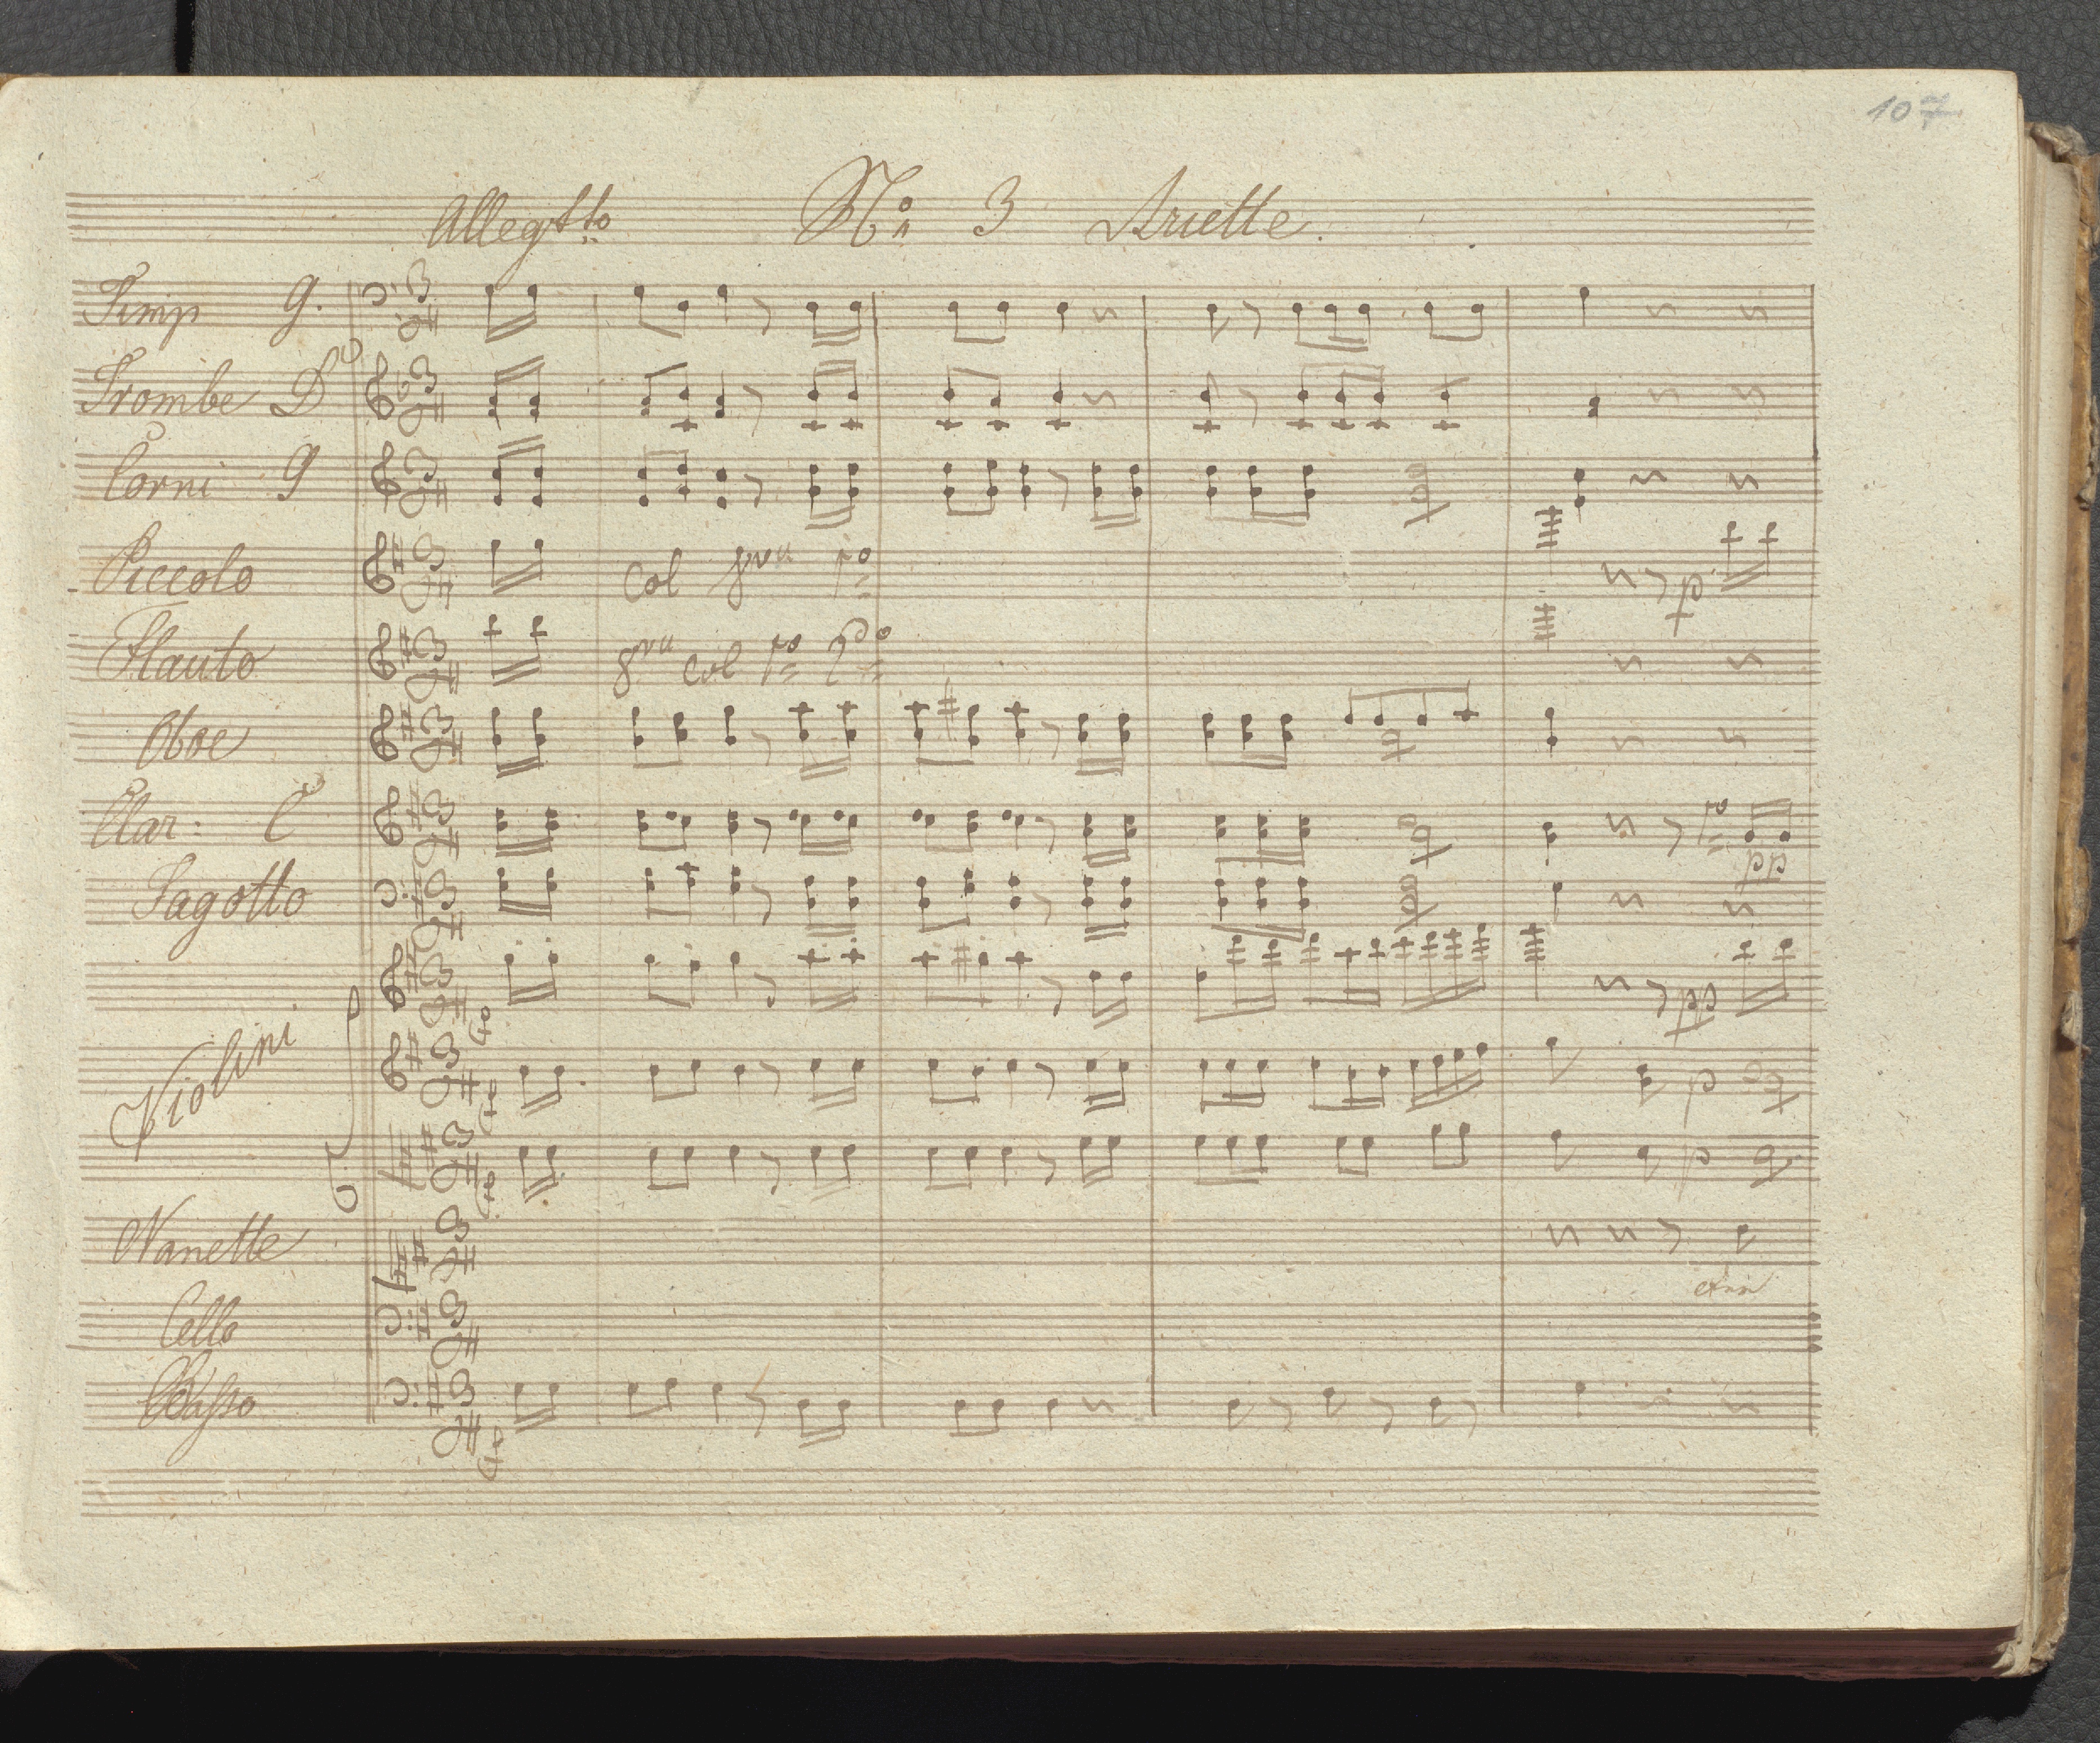 107
Allegtto No 3 Ariette.
Timp G.
Trombe D
Corni G
Piccolo Col 8va 1o p
Flauto 8va col 1o 2do
Oboe
Clar: C 1o pp
Fagotto
Violini pp
p
p
Nanette
Cello
Basso